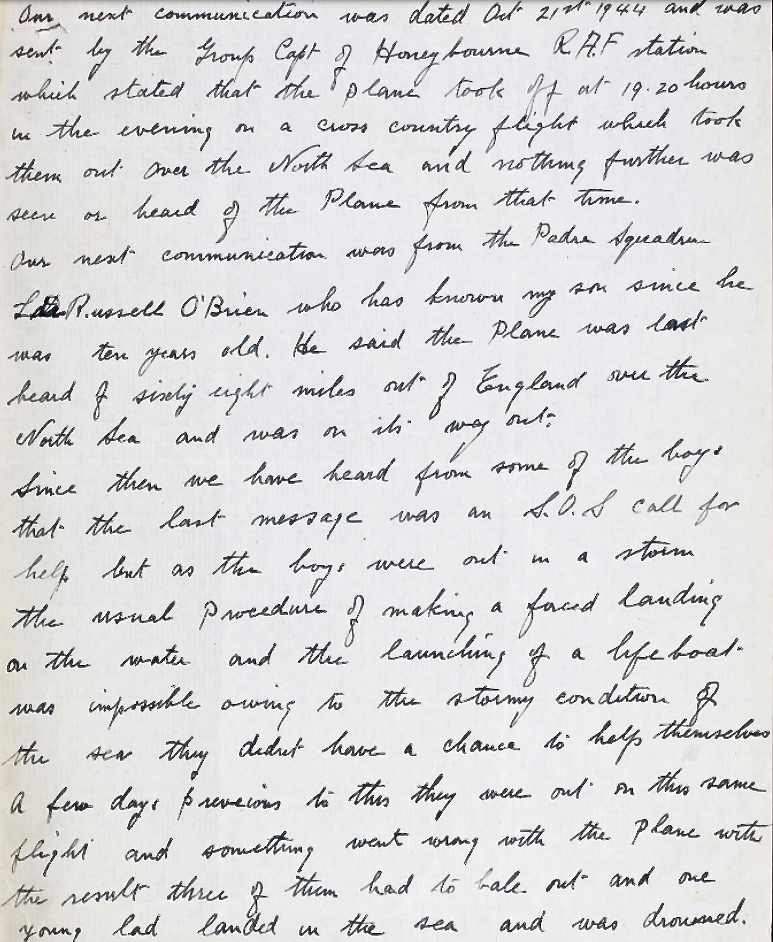 Our next communication was dated Oct 21st 1944 and was
sent by the Group Capt of Honeybourne R.A.F station
which stated that the Plane took off at 19.20 hours
in the evening on a cross country flight which took
them out over the North Sea and nothing further was
seen or heard of the Plane from that time.
Our next communication was from the Padre Squadron
Ldr R.ussell O'Brien who has known my son since he
was ten years old. He said the Plane was last
heard of sixty eight miles out of England over the
North Sea and was on its way out.
Since then we have heard from some of the boys
that the last message was an S.O.S call for
help but as the boys were out in a storm
the usual procedure of making a forced landing
on the water and the launching of a lifeboat
was impossible owing to the stormy condition of
the sea they didn't have a chance to help themselves
A few days preveious to this they were out on this same
flight and something went wrong with the Plane with
the result three of them had to bale out and one
young lad landed in the sea and was drowned.